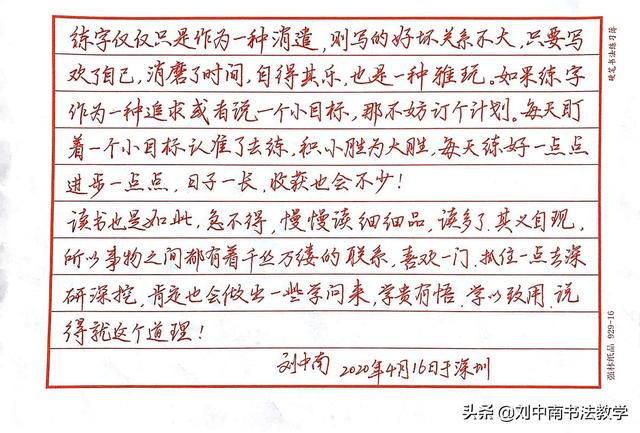 练字仅仅只是作为一种消遣，则写的好坏关系不大，只要写
欢了自己，消磨了时间，自得其乐，也是一种雅玩。如果练字
作为一种追求或者说一个小目标，那不妨订个计划。每天盯
着一个小目标认准了去练，积小胜为大胜，每天练好一点点
进步一点点，日子一长，收获也会不少！
读书也是如此，急不得，慢慢读细细品，读多了，其义自现，
所以事物之间都有着千丝万缕的联系，喜欢一门，抓住一点去深
研深挖，肯定也会做出一些学问来，学贵有悟，学以致用，说
得就这个道理！
刘中南 2020年4月16日于深圳
硬笔书法练习薄
强林纸品 929-16
头条 @刘中南书法教学